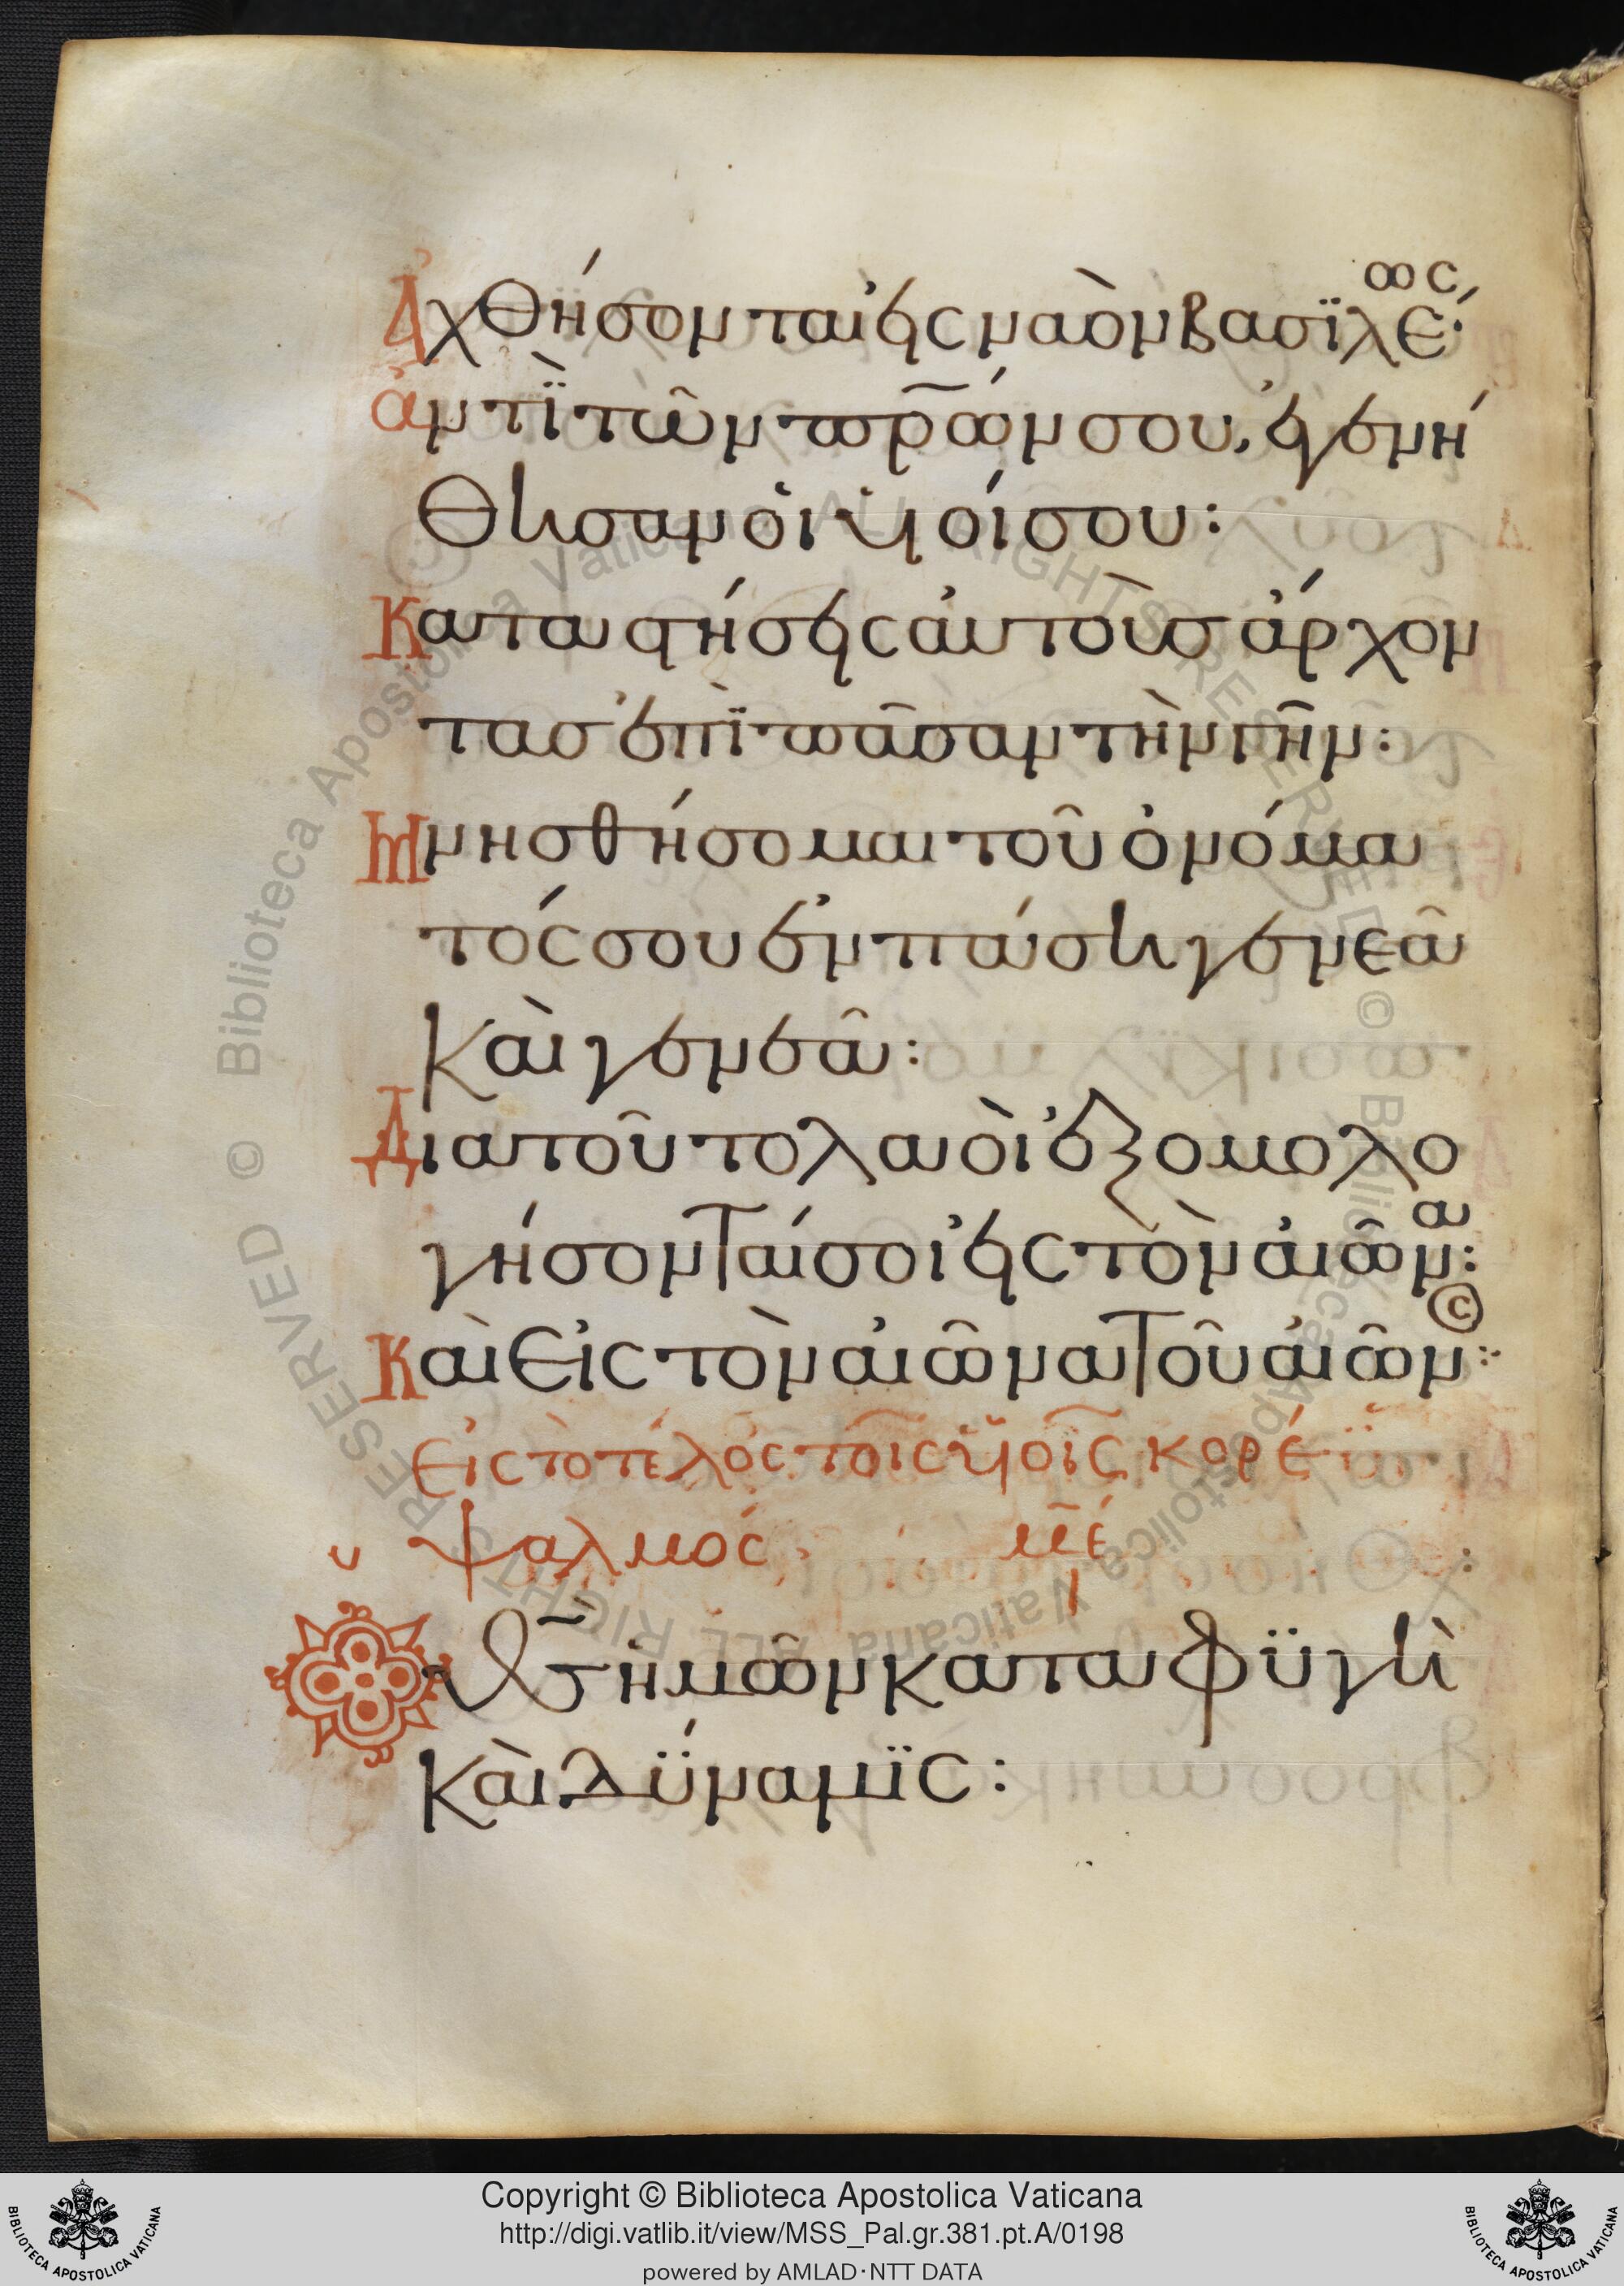 Ἀχθήσονται εἰς ναὸν βασϊλέως·
ἀντῒ τῶν πρ̅ων σου, ἐγενή
θησαν ὁι ὑιοί σου:
Καταστήσεις ἀυτοὺσ ἄρχον
τασ ἐπῒ πᾶσαν τὴν γῆν:
Μνησθήσομαι τοῦ ὀνόμα
τός σου ἐν πάση γενεᾶ
καὶ γενεᾶ:
Δια τοῦτο λαοὶ ἐξομολο
γήσονταί σοι εἰς τὸν ἀιῶνα:
Καὶ εἰς τὸν ἀιῶνα τοῦ ἀιῶνος:
Εἰς τὸ τέλος τοῖς ὑιοῖς κορέ
ψαλμός με̅
Ὁ θ̅σ ἡμῶν καταφϋγὴ
καὶ δΰναμϊς:
Copyright © Biblioteca Apostolica Vaticana
http://digi.vatlib.it/view/MSS_Pal.gr.381.pt.A/0198
powered by AMLAD·NTT DATA
BIBLIOTECA APOSTOLICA VATICANA
BIBLIOTECA APOSTOLICA VATICANA
© Biblioteca Apostolica Vaticana ALL RIGHTS RESERVED © Biblioteca Apostolica Vaticana ALL RIGHTS RESERVED